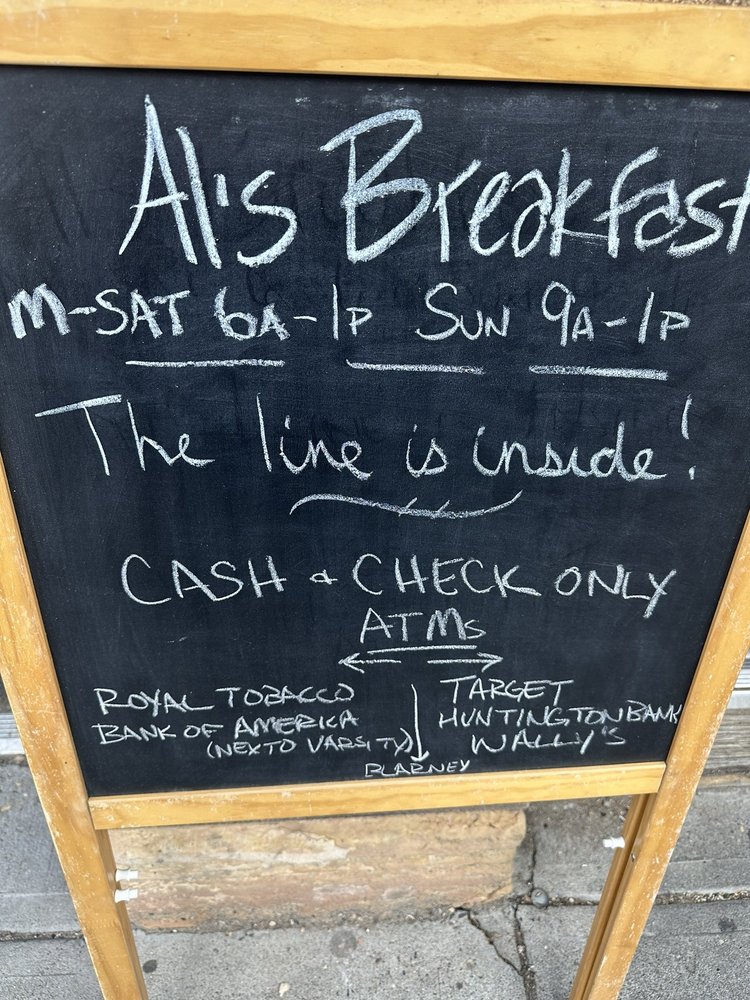 Al's Breakfast
M-SAT 6A-1P SUN 9A-1P
The line is inside!
CASH & CHECK ONLY
ATMs
ROYAL TOBACCO
BANK OF AMERICA
(NEXT TO VARSITY)
TARGET
HUNTINGTON BANK
WALLY'S
BLARNEY